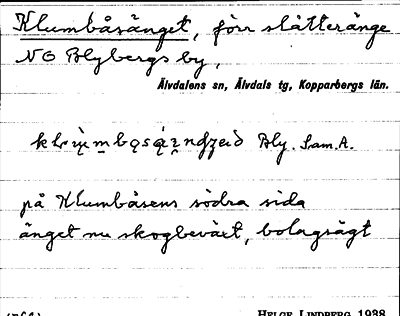 Klumbåsänget, förr slåtteränge
NO Blybergs by,
Älvdalens sn, Älvdals tg, Kopparbergs län.
Bly. Sam. A.
på Klumbåsens södra sida
änget nu skogbeväxt, bolagsägt
HELGE LINDBERG 1938